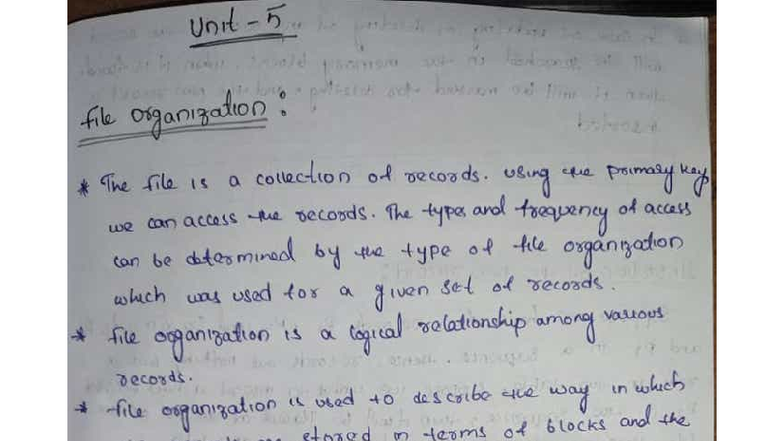 Unit - 5
File organization :
* The file is a collection of records. using the primary key
we can access the records. The type and frequency of access
can be determined by the type of file organization
which was used for a given set of records.
* file organization is a logical relationship among various
records.
* file organization is used to describe the way in which
stored in terms of blocks and the